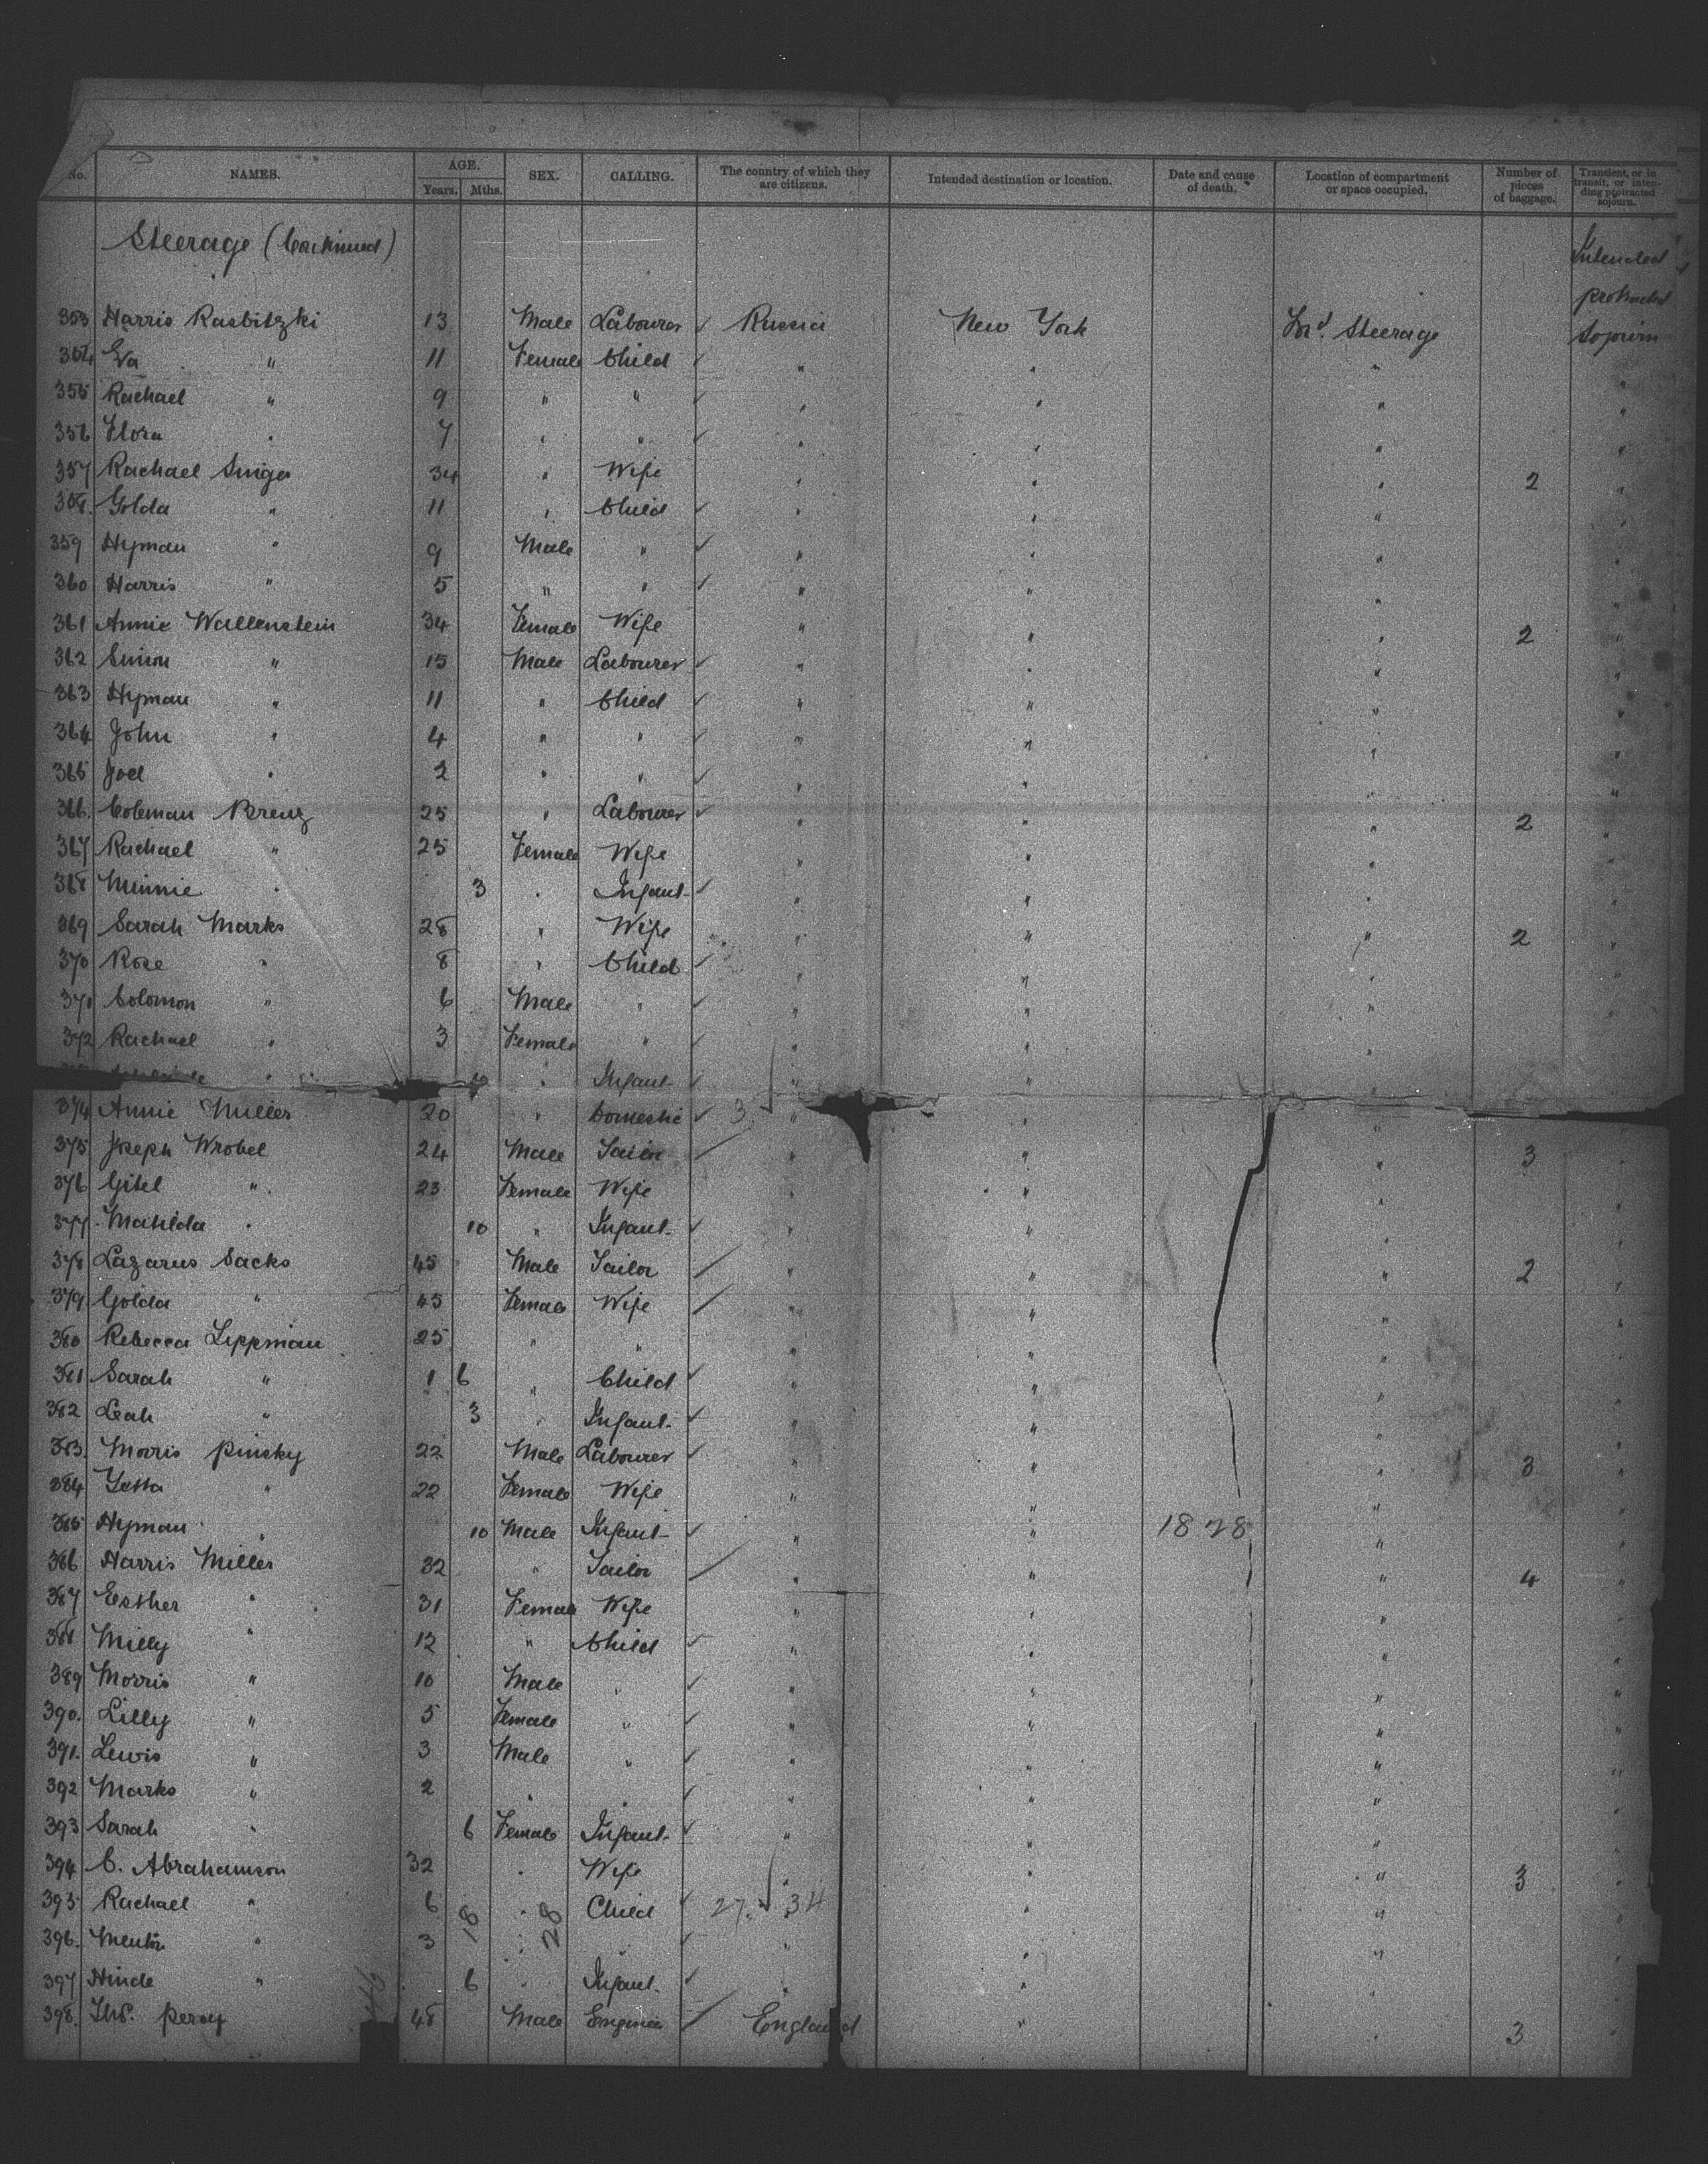 No. NAMES. AGE. Years. Mths. SEX. CALLING. The country of which they are citizens. Intended destination or location. Date and cause of death. Location of compartment or space occupied. Number of pieces of baggage. Transient, or in transit, or intending protracted sojourn.
Steerage (Continued)
Intended protracted sojourn
353 Harris Rasbitzki 13 Male Labourer ✓ Russia New York Steerage
354 Eva " 11 Female Child ✓ " " " "
355 Rachael " 9 " " ✓ " " " "
356 Flora " 7 " " ✓ " " " "
357 Rachael Singer 34 " Wife " " " 2 "
358. Golda " 11 " Child ✓ " " " "
359 Hyman " 9 Male " ✓ " " " "
360 Harris " 5 " " ✓ " " " "
361 Annie Wallenstein 34 Female Wife " " " 2 "
362 Simon " 15 Male Labourer ✓ " " " "
363 Hyman " 11 " Child ✓ " " " "
364 John " 4 " " ✓ " " " "
365 Joel " 2 " " ✓ " " " "
366. Coleman 25 " Labourer ✓ " " " 2 "
367 Rachael " 25 Female Wife " " " "
368 Minnie " 3 " Infant ✓ " " " "
369 Sarah Marks 28 " Wife " " " 2 "
370 Rose " 8 " Child ✓ " " " "
371 Solomon " 6 Male " ✓ " " " "
372 Rachael " 3 Female " ✓ " " " "
" " Infant ✓ " " "
374 Annie Miller 20 " Domestic ✓ 3 " " " "
375 Joseph Wrobel 24 Male Tailor " " " 3 "
376 Gitel " 23 Female Wife " " " "
377. Matilda " 10 " Infant ✓ " " " "
378 Lazarus Sacks 45 Male Tailor " " " 2 "
379. Golda " 45 Female Wife " " " "
380 Rebecca Lippman 25 " " " " " "
381 Sarah " 1 6 " Child ✓ " " " "
382 Leah " 3 " Infant ✓ " " " "
383. Morris Pinsky 22 Male Labourer ✓ " " " 3 "
384 Yetta " 22 Female Wife " " " "
385 Hyman " 10 Male Infant ✓ " " 18 28 " "
386 Harris Miller 32 " Tailor " " " 4 "
387 Esther " 31 Female Wife " " " "
388 Milly " 12 " Child ✓ " " " "
389 Morris " 10 Male " ✓ " " " "
390. Lilly " 5 Female " ✓ " " " "
391. Lewis " 3 Male " ✓ " " " "
392 Marks " 2 " " ✓ " " " "
393 Sarah " 6 Female Infant ✓ " " " "
394 C. Abrahamson 32 " Wife " " " 3 "
395 Rachael " 6 " Child ✓ 27. 34 " " "
18 28
396. " 3 " " ✓ " " " "
397 Hinde " 6 " Infant ✓ " " " "
398. Thos. Percy 48 Male Engineer England " " 3 "